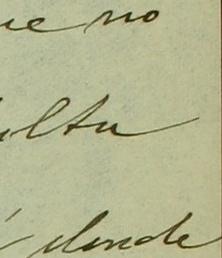 ue no
ulta
donde